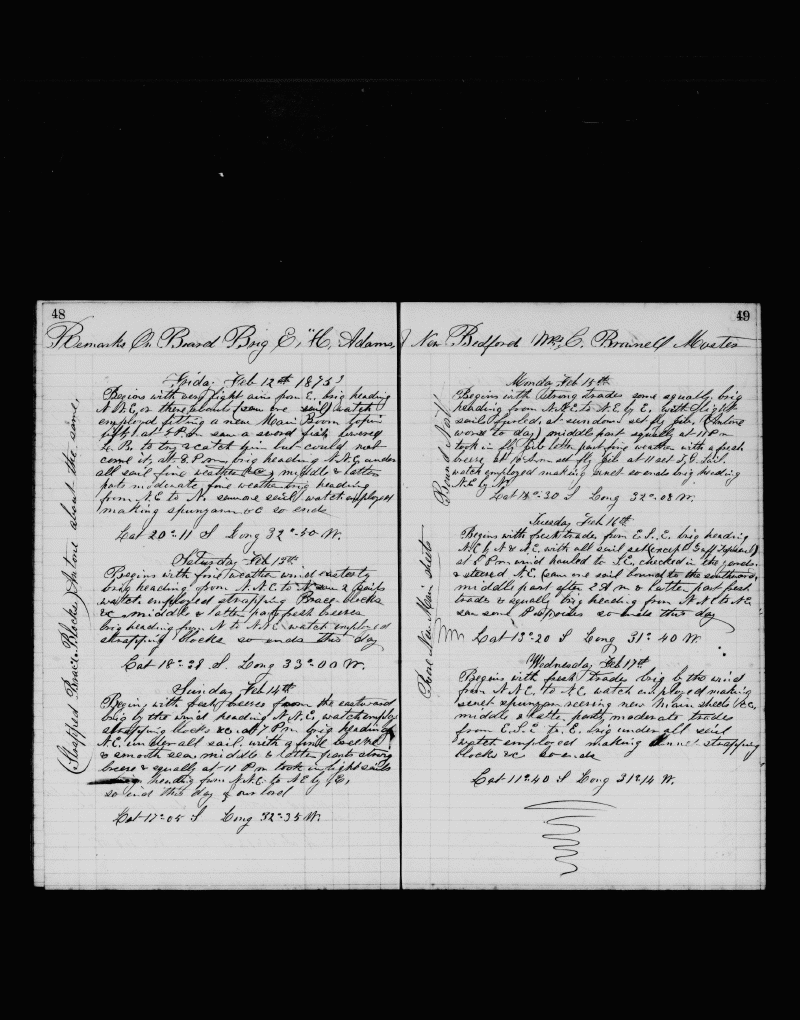 48
Remarks On Board Brig E, "H, Adams,
Friday Feb 12th 1875
Begins with very light airs from E. brig heading
N.N.E, or thereabouts (saw one sail) watch
employed fitting a new Main Boom
at 2 P.m saw a sword fish, lowered
L. B. to try & catch him but could not
come it, at 8 P.m, brig heading N.N.E, under
all sail fine weather &c, middle & latter
parts moderate fine weather brig heading
from N.E to N. saw one sail, watch employed
making spunyarn &c so ends
Lat 20°11 S Long 32°50 W.
Saturday Feb 13th
Begins with fine weather wind easterly
brig heading from N.N.E. to N saw 2 sails
watch employed strapping Brace blocks
&c middle & latter part fresh breeses
brig heading from N to N.N.E. watch employed
strapping blocks so ends this day
Lat 18°38 S. Long 33°00 W.
Sunday Feb 14th
Begins with fresh breeses from the eastward
brig by the wind heading N.N.E, watch employed
strapping blocks &c at 7 P.m. brig heading
N.E. under all sail, with a fine breeze
& smooth sea, middle & latter parts strong
breeze & squally, at 11 P.m took in light sails
heading from N.N.E. to N.E by E,
so ends this day of our lord
Lat 17°05 S Long 32°35 W.
(Strapped Brace Blocks) Antone about the same,
49
New Bedford C. Brownell Master
Monday Feb 15th
Begins with strong trades some squally, brig
heading from N.N.E to N.E by E. with light
sails furled, at sundown set fly jib, (Antone
worse to day) middle part squally at 11 P.m
took in fly jib latter part fine weather with a fresh
breeze
watch employed making sinet so ends brig heading
N.E by N,
Long 32°08 W.
Tuesday Feb 16th
Begins with fresh trades from E.S.E. brig heading
N.E by N & N.E, with all sail set (except Gaff Topsail)
at 2 P.m wind hauled to S.E, checked in the yards
& steered N.E (saw one sail bound to the southward,
middle part after 2 A m & latter part fresh
trades & squally brig heading from N.N.E to N.E,
saw some so ends this day
Lat 13°20 S Long 31°40 W.
Wednesday Feb 17th
Begins with fresh trades brig by the wind
from N.N.E. to N.E, watch employed making
sinet spunyarn reeving new main sheets &c.
middle & latter parts moderate trades
from E.S.E to E. brig under all sail
watch employed making sinnet strapping
blocks &c so ends
Lat 11°40 S Long 31°14 W.
Bound North
New Main sheets